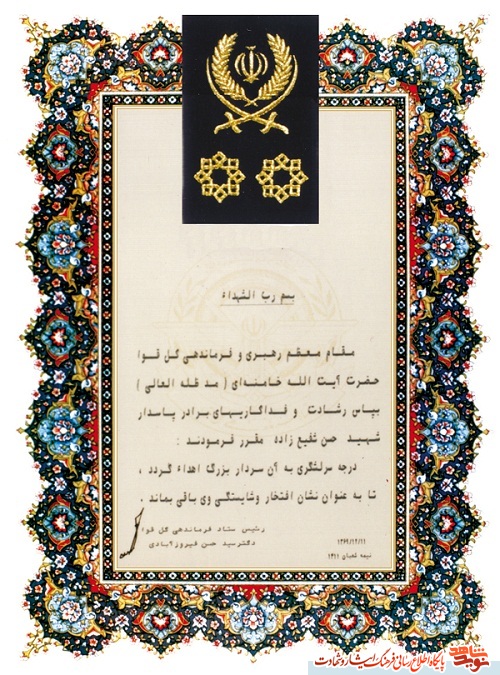 بسم رب الشهداء
مقام معظم رهبری و فرماندهی کل قوا
حضرت آیت الله خامنه‌ای ( مد ظله العالی )
بپاس رشادت و فداکاریهای برادر پاسدار
شهید حسن شفیع زاده مقرر فرمودند :
درجه سرلشگری به آن سردار بزرگ اهداء گردد ،
تا به عنوان نشان افتخار وشایستگی وی باقی بماند .
رئیس ستاد فرماندهی کل قوا
دکترسید حسن فیروزآبادی
۱۳۶۹/۱۲/۱۱
نیمه شعبان ۱۴۱۱
نوید شاهد
پایگاه اطلاع رسانی فرهنگ ایثار و شهادت